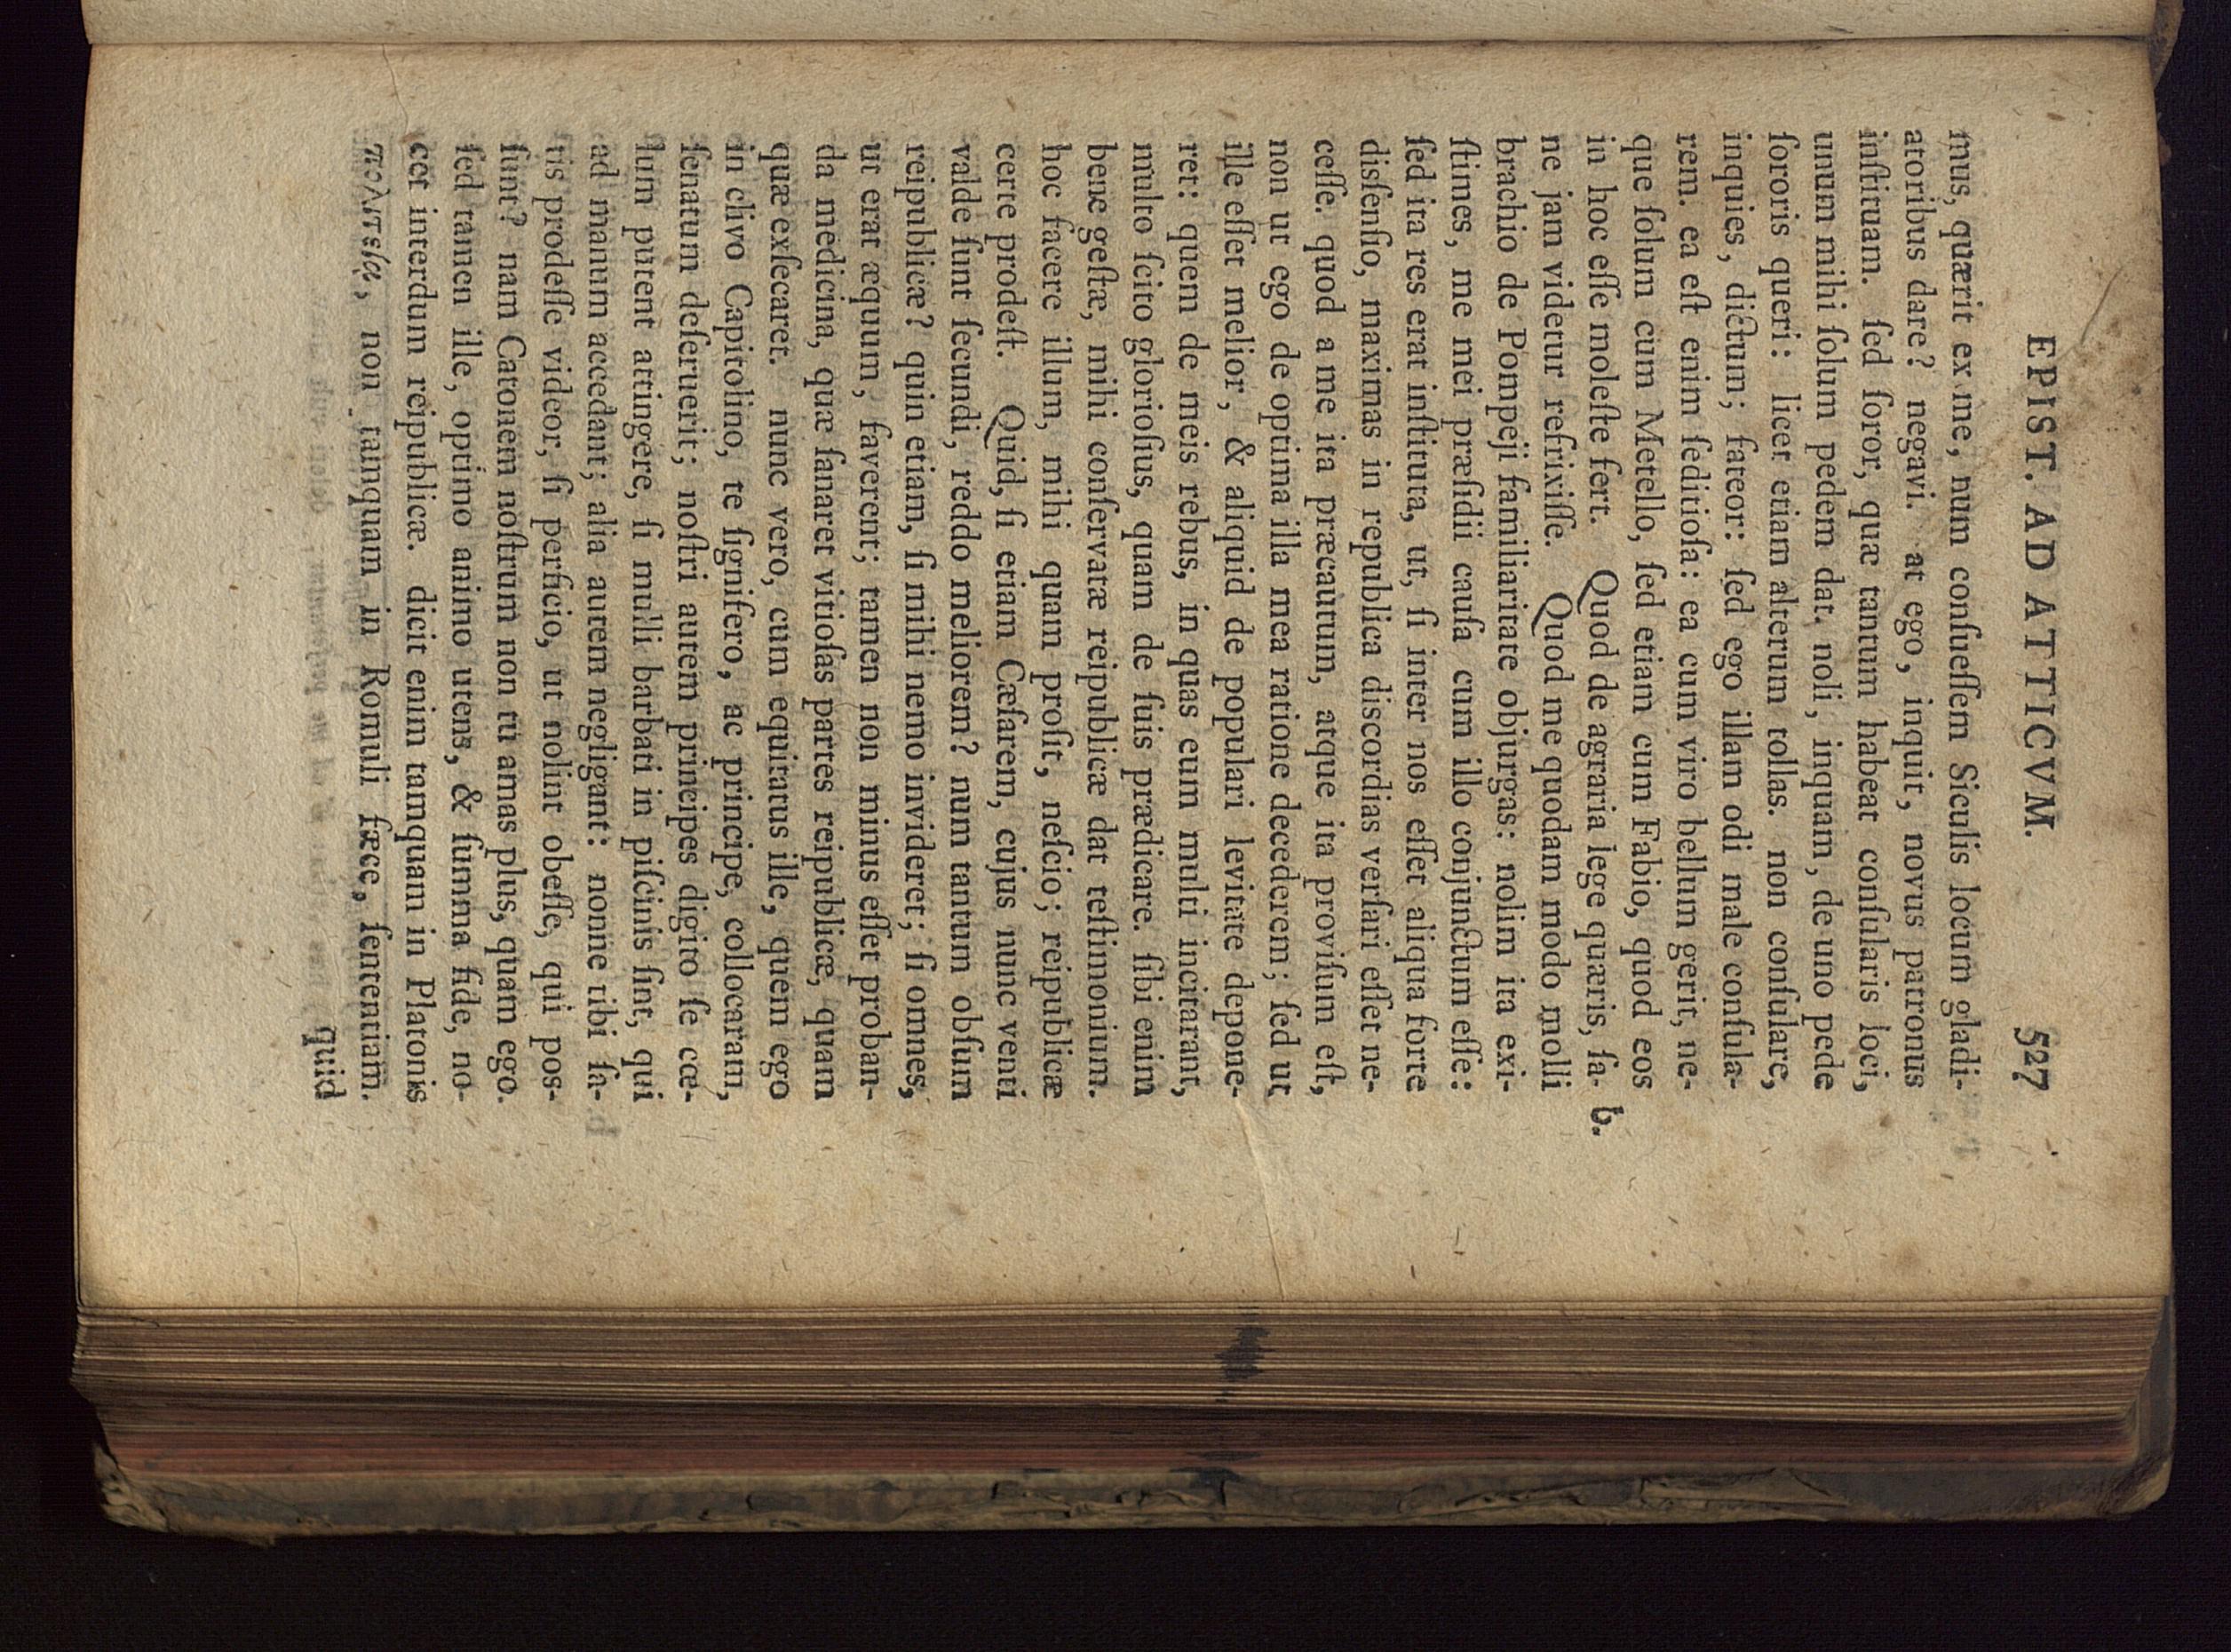 EPIST. AD ATTICVM. 527
mus, quærit ex me, num conſueſſem Siculis locum gladi-
atoribus dare? negavi. at ego, inquit, novus patronus
inſtituam. ſed ſoror, quæ tantum habeat conſularis loci,
unum mihi ſolum pedem dat. noli, inquam, de uno pede
ſororis queri: licet etiam alterum tollas. non conſulare,
inquies, dictum; fateor: ſed ego illam odi male conſula-
rem. ea eſt enim ſeditioſa: ea cum viro bellum gerit, ne-
que ſolum cum Metello, ſed etiam cum Fabio, quod eos
in hoc eſſe moleſte fert. Quod de agraria lege quæris, ſa- b.
ne jam videtur refrixiſſe. Quod me quodam modo molli
brachio de Pompeji familiaritate objurgas: nolim ita exi-
ſtimes, me mei præſidii cauſa cum illo conjunctum eſſe:
ſed ita res erat inſtituta, ut, ſi inter nos eſſet aliqua forte
disſenſio, maximas in republica discordias verſari eſſet ne-
ceſſe. quod a me ita præcautum, atque ita proviſum eſt,
non ut ego de optima illa mea ratione decederem; ſed ut
ille eſſet melior, & aliquid de populari levitate depone-
ret: quem de meis rebus, in quas eum multi incitarant,
multo ſcito glorioſius, quam de ſuis prædicare. ſibi enim
bene geſtæ, mihi conſervatæ reipublicæ dat teſtimonium.
hoc facere illum, mihi quam proſit, neſcio; reipublicæ
certe prodeſt. Quid, ſi etiam Cæſarem, cujus nunc venti
valde ſunt ſecundi, reddo meliorem? num tantum obſum
reipublicæ? quin etiam, ſi mihi nemo invideret; ſi omnes,
ut erat æquum, faverent; tamen non minus eſſet proban-
da medicina, quæ ſanaret vitioſas partes reipublicæ, quam
quæ exſecaret. nunc vero, cum equitatus ille, quem ego
in clivo Capitolino, te ſignifero, ac principe, collocaram,
ſenatum deſeruerit; noſtri autem principes digito ſe cœ-
lum putent attingere, ſi mulli barbati in piſcinis ſint, qui
ad manum accedant; alia autem negligant: nonne tibi ſa-
tis prodeſſe videor, ſi perficio, ut nolint obeſſe, qui pos-
ſunt? nam Catonem noſtrum non tu amas plus, quam ego.
ſed tamen ille, optimo animo utens, & ſumma fide, no-
cet interdum reipublicæ. dicit enim tamquam in Platonis
πολιτείᾳ, non tamquam in Romuli fæce, ſententiam.
quid